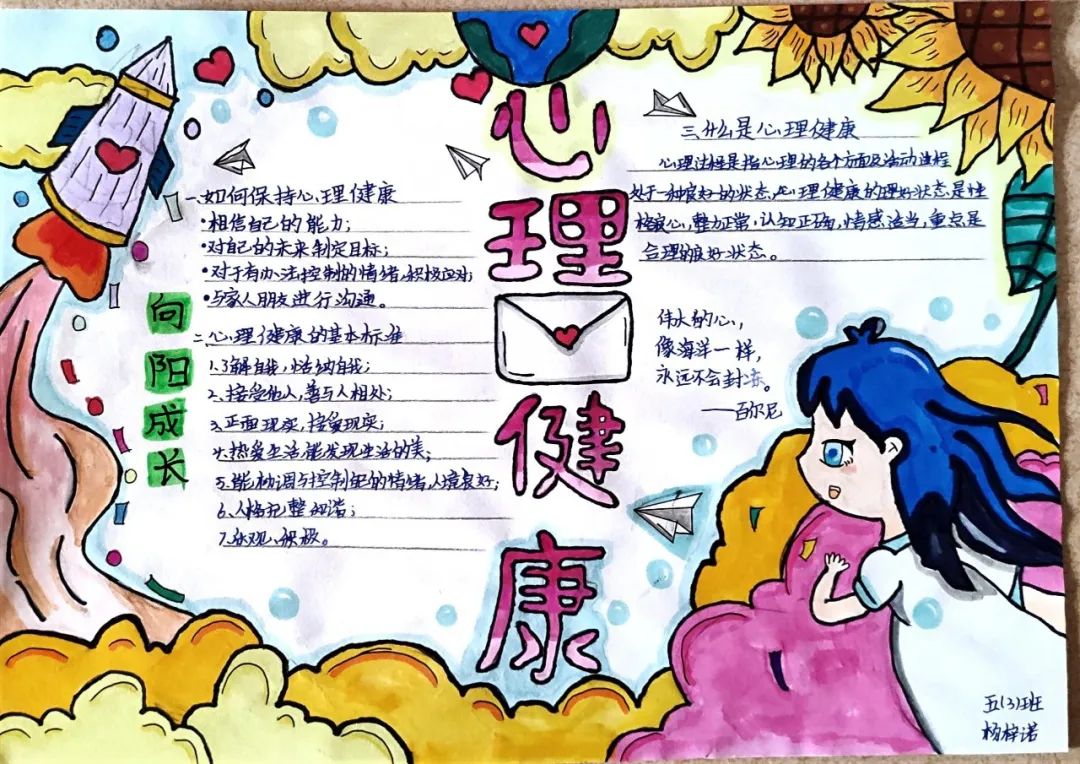 心理健康
向阳成长
一、如何保持心理健康
•相信自己的能力;
•对自己的未来制定目标;
•对于有办法控制的情绪,积极应对;
•与家人朋友进行沟通。
二、心理健康的基本标准
1.了解自我,悦纳自我;
2.接受他人,善与人相处;
3.正面现实,接受现实;
4.热爱生活,能发现生活的美;
5.能协调与控制的情绪,心境良好;
6.人格完整和谐;
7.乐观、积极。
三、什么是心理健康
心理过程是指心理的各个方面及活动过程
处于一种良好的状态,心理健康的理好状态是性
格良心,智力正常,认知正确,情感适当,重点是
合理的良好状态。
伟大的心,
像海洋一样,
永远不会封冻。
——白尔尼
五(3)班
杨梓诺